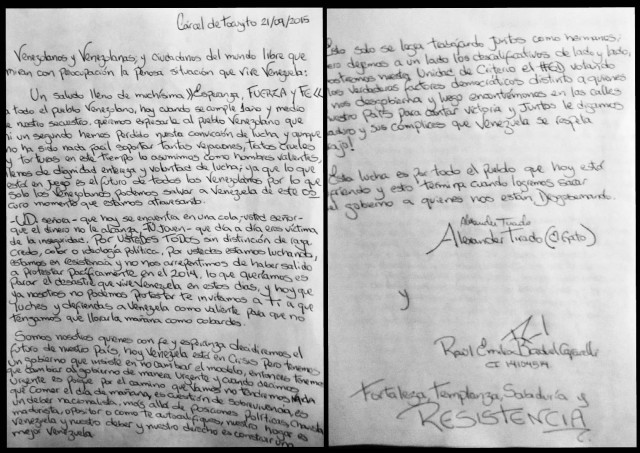 Cárcel de Tocuyito 21/09/2015
Venezolanos y Venezolanas; y ciudadanos del mundo libre que
miran con preocupación la penosa situación que vive Venezuela:
Un saludo lleno de muchísima Esperanza, FUERZA Y FE
a todo el pueblo Venezolano, hoy cuando se cumple 1 año y medio
de nuestro secuestro, queremos expresarle al pueblo Venezolano que
ni un segundo hemos perdido nuestra convicción de lucha, y aunque
no ha sido nada fácil soportar tantas vejaciones, tratos crueles
y torturas en este tiempo lo asumimos como hombres valientes,
llenos de dignidad entereza y voluntad de lucha; ya que lo que
está en juego es el futuro de todos los Venezolanos por lo que
solo los Venezolanos podemos salvar a Venezuela de este os
curo momento que estamos atravesando.
-UD. señora- que hoy se encuentra en una cola, -usted señor-
que el dinero no le alcanza, -TU Joven- que día a día eres víctima
de la inseguridad, POR USTEDES TODOS sin distinción de raza
credo, color o ideología política, Por ustedes estamos luchando,
estamos en resistencia y no nos arrepentimos de haber salido
a Protestar Pacíficamente en el 2014, lo que queríamos es
parar el desastre que vive Venezuela en estos días, y hoy que
ya nosotros no podemos Protestar te invitamos a TI a que
luches y defiendas a Venezuela como valiente para que no
tengamos que llorarla mañana como cobardes.
Somos nosotros quienes con fe y esperanza decidiremos el
futuro de nuestro País, hoy Venezuela está en Crisis pero tenemos
un gobierno que insiste en no cambiar el modelo, entonces tenemos
que cambiar al gobierno de manera Urgente y cuando decimos
Urgente es porque por el camino que vamos no tendremos NADA
que comer el día de mañana, es cuestión de sobrevivencia, es
un deber nacionalista, más allá de posiciones políticas, Chavista
madurista, opositor o como te autocalifiques, nuestro hogar es
Venezuela y nuestro deber y nuestro derecho es construir una
mejor Venezuela.
Esto solo se logra trabajando Juntos como hermanos;
pero dejemos a un lado los descalificativos de lado y lado,
mostremos nuestra Unidad de Criterio el #6D votando
los verdaderos factores democráticos distinto a quienes
nos desgobierna y luego encontrémonos en las calles
nuestro País para cantar victoria y Juntos le digamos
y sus cómplices que Venezuela se respeta
Esta lucha es por todo el Pueblo que hoy está
y esto termina cuando logremos sacar
el gobierno a quienes nos están Desgobernando.
Alexander Tirado
Alexander Tirado (El Gato)
y
Raúl Emilio Baduel Cafarelli
CI
Fortaleza, Templanza, Sabiduría y
RESISTENCIA